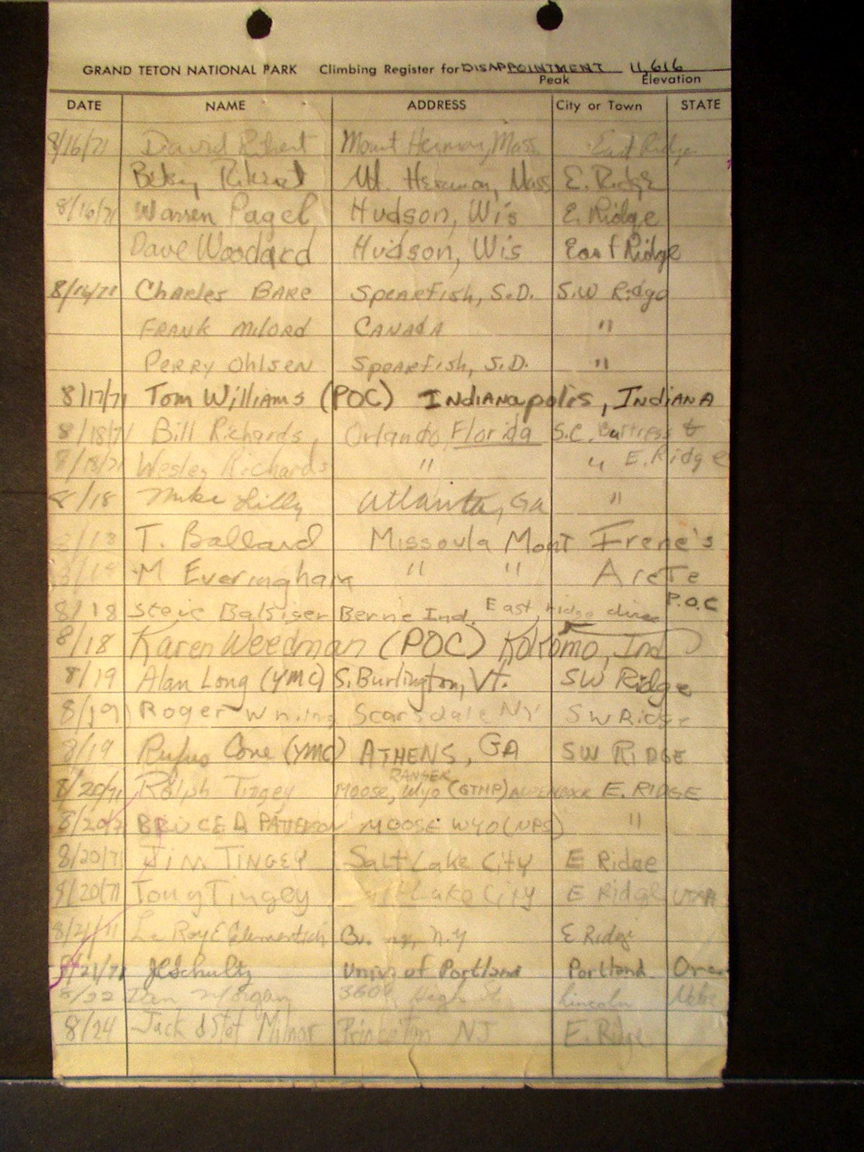 GRAND TETON NATIONAL PARK Climbing Register for DISAPPOINTMENT 11,616
Peak Elevation
DATE NAME ADDRESS City or Town STATE
8/16/71 David Mount Hermon, Mass. East Ridge
Betsy Mt. Hermon, Mass E. Ridge
8/16/71 Warren Pagel Hudson, Wis E. Ridge
Dave Woodard Hudson, Wis East Ridge
8/16/71 Charles BARE SPEARFish, S.D. S.W Ridge
FRANK Milord CANADA "
PERRY Ohlsen SPEARfish, S.D. "
8/17/71 Tom Williams (POC) INdiANApolis, INdiANA
8/18/71 Bill Richards, Orlando Florida S.C. &
8/18/71 Wesley Richards " " E. Ridge
8/18 Mike Lilly Atlanta, GA "
8/18 T. Ballard Missoula Mont Irene's
M Everingham " " AreTe
8/18 Berne Ind. East ridge P.O.C
8/18 Karen Weedman (POC) Kokomo, Ind
8/19 Alan Long (YMC) S. Burlington, Vt. SW Ridge
8/19 Roger Scarsdale NY SW Ridge
8/19 Rufus Cone (YMC) ATHENS, GA SW RIDGE
RANGER
8/20/71 Ralph Tingey MOOSE, Wyo (GTNP) E. RIDGE
8/20/71 BRUCE D PATTERSON MOOSE WYO (NPS) "
8/20/71 JIM TINGEY Salt Lake City E Ridge
8/20/71 Tony Tingey Salt Lake City E Ridge UTAH
8/21/71 N.Y E Ridge
8/21/71 JCSchultz Univ. of Portland Portland Ore.
8/22 Dan Morgan High St. Lincoln Nebr
8/24 Jack Milnor Princeton NJ E. Ridge